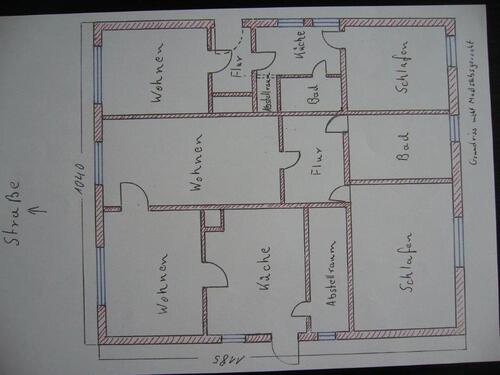 Straße
↑
1040
1185
Wohnen
Flur
Küche
Schlafen
Abstellraum
Bad
Wohnen
Flur
Bad
Wohnen
Küche
Abstellraum
Schlafen
Grundriss nicht Maßstabsgerecht